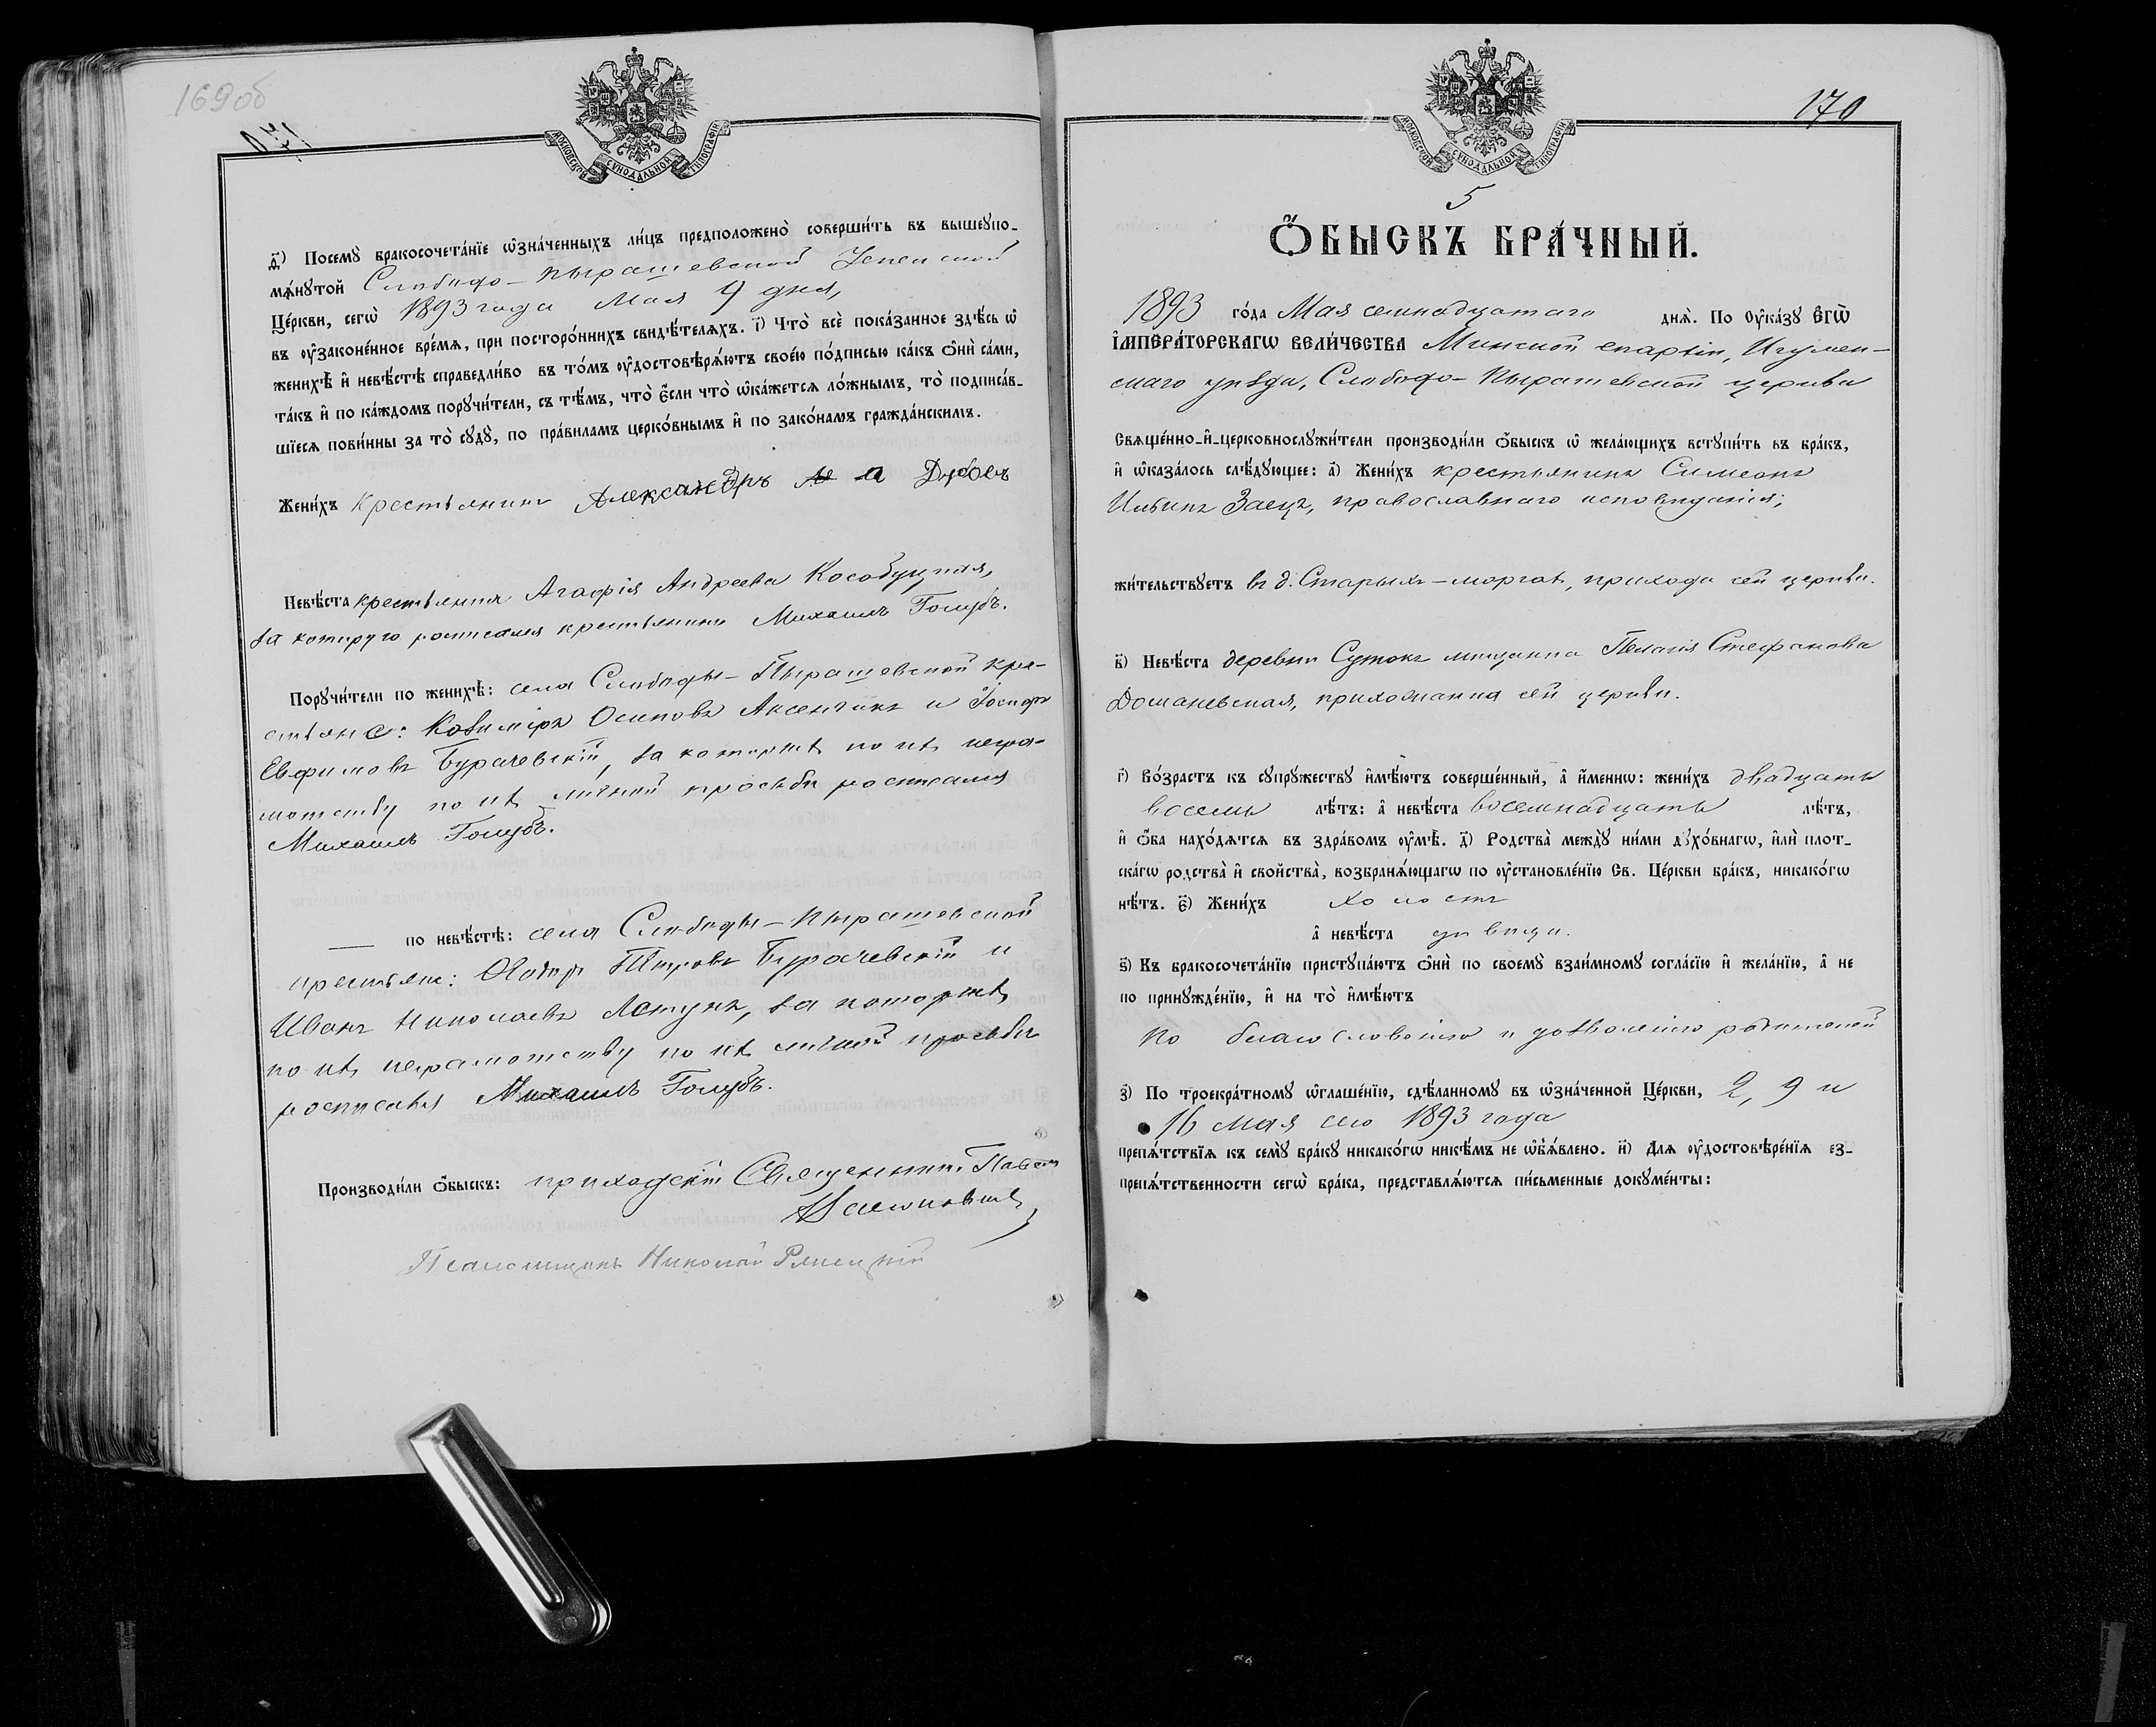 169 об
170
МОСКОВСКОЙ СѴНОДАЛЬНОЙ ТИПОГРАФІИ
д҃і) Посемꙋ̀ бракосочета́нїе ѡ҆зна́ченныхъ ли́цъ предположено̀ соверши́ть въ вышеꙋпо-
мѧ́нꙋтой Слободо-Пырашевской Успенской
Це́ркви, сегѡ̀ 1893 года Мая 9 дня,
въ оу҆законе́нное вре́мѧ, при посторо́ннихъ свидѣ́телѧхъ. і҃) Что̀ всѐ пока́занное здѣ́сь ѡ҆
женихѣ̀ и҆ невѣ́стѣ справедли́во въ то́мъ оу҆достовѣрѧ́ютъ свое́ю по́дписью ка́къ ѻ҆нѝ са́ми,
та́къ и҆ по ка́ждомъ порꙋчи́тели, съ тѣ́мъ, что̀ є҆́сли что̀ ѡ҆ка́жетсѧ ло́жнымъ, то̀ подписа́в-
шїесѧ пови́нны за то̀ сꙋдꙋ̀, по пра́виламъ церко́внымъ и҆ по зако́намъ гражда́нскимъ.
Жени́хъ крестьянинъ Александръ а Дубовъ
Невѣ́ста крестьянка Агафія Андреева Кособуцкая,
за которую росписался крестьянинъ Михаилъ Голубъ.
Порꙋчи́тели по женихѣ̀: села Слободы-Пырашевской кре-
стьяне: Казиміръ Осиповъ Аксенчикъ и
Евфимовъ Бурачевскій, за которыхъ по ихъ негра-
мотству по ихъ личной просьбѣ росписался
Михаилъ Голубъ.
— по невѣ́стѣ: села Слободы-Пырашевской
крестьяне: Петровъ Бурачевскій и
Иванъ Николаевъ Астукъ, за которыхъ
по ихъ неграмотству по ихъ личной просьбѣ
росписался Михаилъ Голубъ.
Производи́ли ѻ҆́быскъ: приходскій Священникъ Павелъ
Псаломщикъ Николай
170
МОСКОВСКОЙ СѴНОДАЛЬНОЙ ТИПОГРАФІИ
5
Ѻ҆́БЫСКЪ БРА́ЧНЫЙ.
1893 го́да Мая семнадцатаго днѧ̀. По Оу҆ка́зꙋ Є҆гѡ̀
І҆мпера́торскагѡ Вели́чества Минской епархіи, Игумен-
скаго уѣзда, Слободо-Пырашевской церкви
Свѧще́нно-и҆-церковнослꙋжи́тели производи́ли ѻ҆́быскъ ѡ҆ жела́ющихъ встꙋпи́ть въ бра́къ,
и҆ ѡ҆каза́лось слѣ́дꙋющее: а҃) Жени́хъ крестьянинъ Симеонъ
Ильинъ Заецъ, православнаго исповѣданія;
жи́тельствꙋетъ въ д. Старыхъ-моргахъ, прихода сей церкви.
в҃) Невѣ́ста деревни Сутокъ мѣщанка Пелагія Стефанова
Доманевская, прихожанка сей церкви.
г҃) Во́зрастъ къ сꙋпрꙋ́жествꙋ и҆мѣ́ютъ соверше́нный, а҆ и҆́меннѡ: жени́хъ двадцать
восемь лѣ́тъ: а҆ невѣ́ста восемнадцать лѣ́тъ,
и҆ ѻ҆́ба нахо́дѧтсѧ въ здра́вомъ оу҆мѣ̀. д҃) Родства̀ междꙋ̀ ни́ми дꙋхо́внагѡ, и҆лѝ плот-
ска́гѡ родства̀ и҆ свойства̀, возбранѧ́ющагѡ по оу҆становле́нїю Св. Це́ркви бра́къ, никако́гѡ
нѣ́тъ. є҃) Жени́хъ холостъ
а҆ невѣ́ста дѣвица.
ѕ҃) Къ бракосочета́нїю пристꙋпа́ютъ ѻ҆нѝ по своемꙋ̀ взаи́мномꙋ согла́сїю и҆ жела́нїю, а҆ не
по принꙋжде́нїю, и҆ на то̀ и҆мѣ́ютъ
по благословенію и дозволенію родителей
з҃) По троекра́тномꙋ ѡ҆глаше́нїю, сдѣ́ланномꙋ въ ѡ҆зна́ченной Це́ркви, 2, 9 и
16 мая сего 1893 года
препѧ́тствїѧ къ семꙋ̀ бра́кꙋ никако́гѡ никѣ́мъ не ѡ҆б̾ѧ́влено. и҃) Длѧ оу҆достовѣре́нїѧ ез-
препѧ́тственности сегѡ̀ бра́ка, представлѧ́ютсѧ пи́сьменные докꙋме́нты: